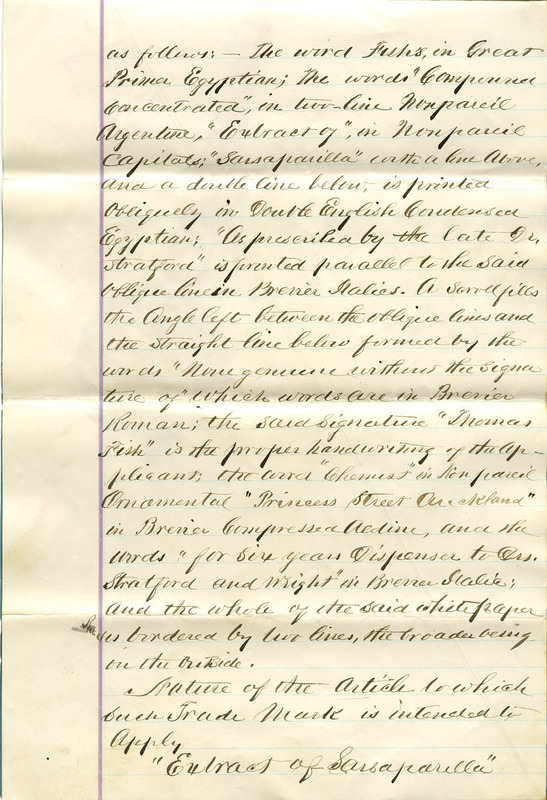 as follows: — The word Fish's, in Great
Prima Egyptian; the words "Compound
Concentrated", in two-line Nonpareil
Argentine, "Extract of", in Nonpareil
Capitals; "Sarsaparilla" with a line above,
and a double line below, is printed
obliquely in Double English Condensed
Egyptian; "As prescribed by the late Dr.
Stratford" is printed parallel to the said
oblique line in Brevier Italics. A scroll fills
the Angle left between the oblique lines and
the straight line below formed by the
words "None genuine without the Signa
ture of" which words are in Brevier
Roman; the said Signature "Thomas
Fish" is the proper handwriting of the Ap-
plicant; the word "Chemist" in Nonpareil
Ornamental "Princess Street Auckland"
in Brevier Compressed Aldine, and the
words "for Six years Dispenser to Drs.
Stratford and Wright" in Brevier Italic;
and the whole of the said white paper
is bordered by two lines, the broader being
on the Outside.
Nature of the Article to which
such Trade Mark is intended to
Apply
"Extract of Sarsaparilla"